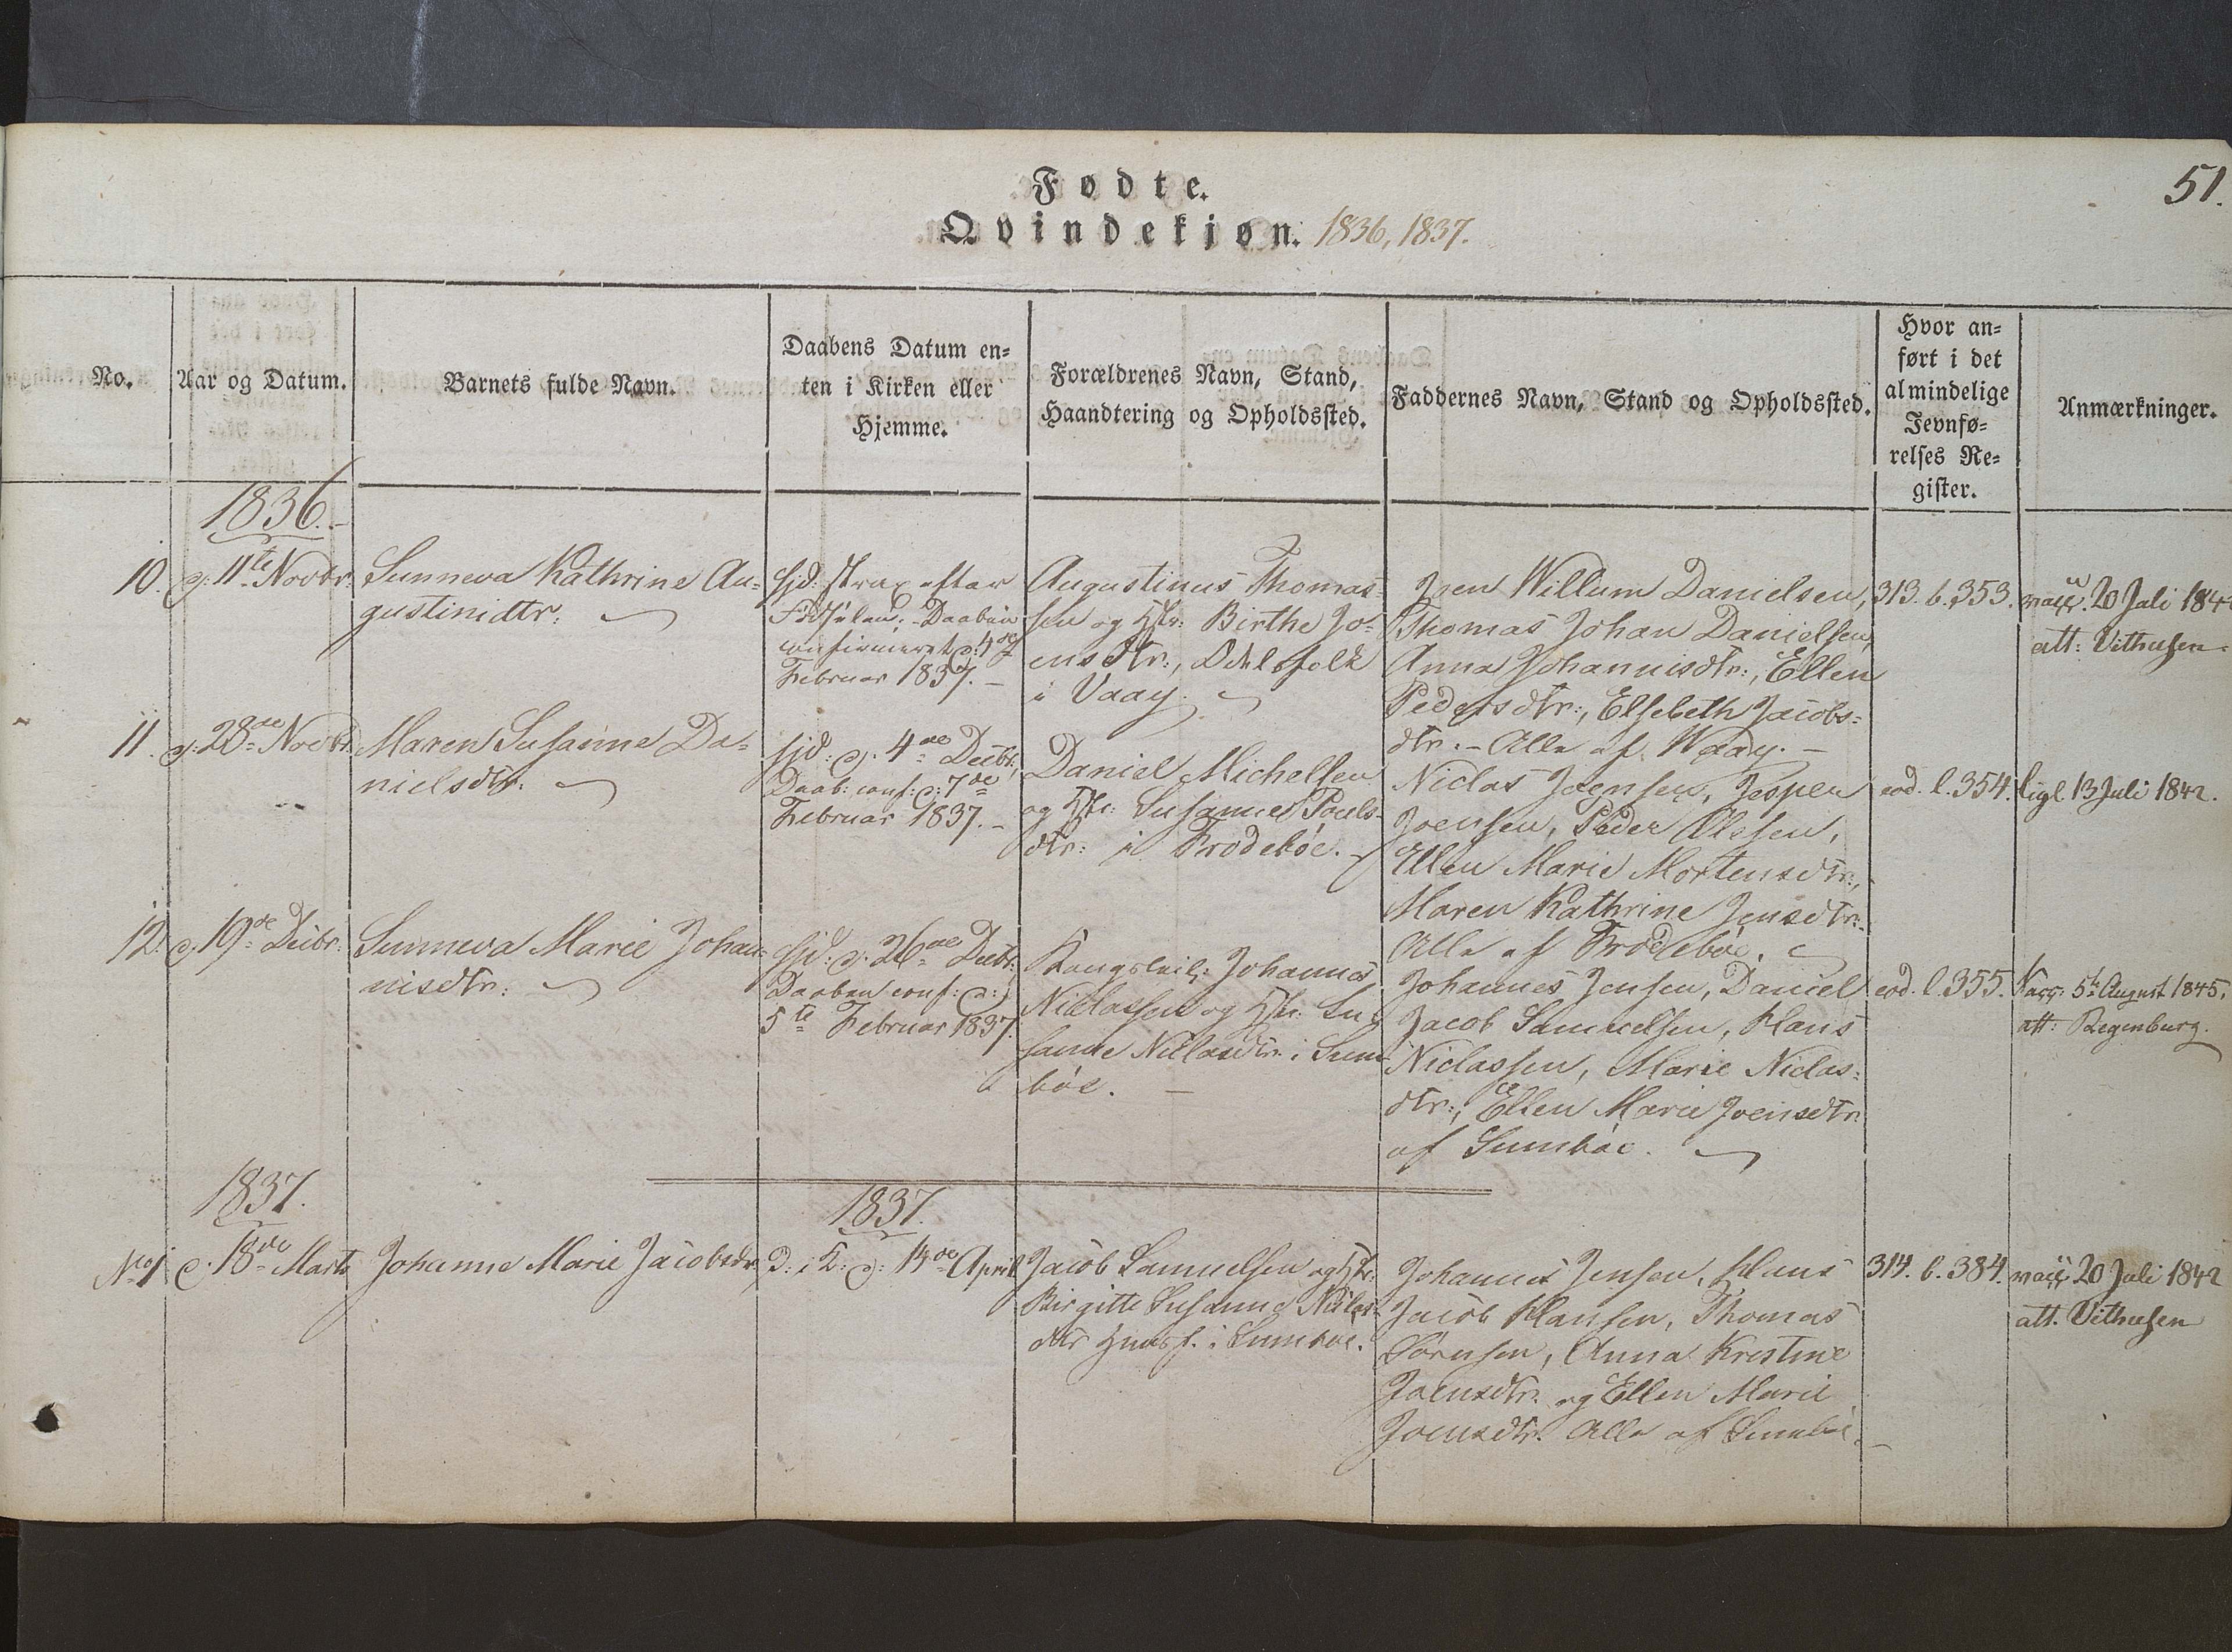 Fødte.
51.
Qvindekjøn. 1836, 1837.
No.
Aar og Datum.
Barnets fulde Navn.
Daabens Datum en-
ten i Kirken eller
Hjemme.
Forældrenes Navn, Stand,
Haandtering og Opholdssted.
Faddernes Navn, Stand og Opholdssted.
Hvor an-
ført i det
almindelige
Jevnfø-
relses Re-
gister.
Anmærkninger.
1836.-
10.
d: 11te Novbr.
Sunneva Kathrine Au-
gustinidtr:
hjd: strax efter
Fødselen; Daaben
confirmeret d: 4de
Februar 1837.-
Augustinus Thomas-
sen og Hstr: Birthe Jo-
ensdtr:, Odelsfolk
i Vaag.
Joen Willum Danielsen,
Thomas Johan Danielsen,
Anna Johannisdtr:, Ellen
Pedersdtr:, Elsebeth Jacobs-
dtr.- Alle af Waag.-
313. b. 353.
vacc. 20 Juli 184
att: Vithusen.
11.
d: 28de Novbr.
Maren Susanne Da-
nielsdtr.
hjd: d. 4de Decbr.
Daab: conf: d: 7de
Februar 1837.-
Daniel Michelsen
og Hstr: Susanne Pouls-
dtr: i Frodebøe.
Niclas Joensen, Jesper
Joensen, Peder Olesen,
Ellen Marie Mortensdtr:,
Maren Kathrine Jensdtr:.
Alle af Frodebøe.
eod. l. 354.
ligl. 13 Juli 1842.
12.
d: 19de Decbr:
Sunneva Marie Johan-
nisdtr:
hjd: d. 26de Decbr:
Daaben conf: d:
5te Februar 1837.
Kongsleil: Johannes
Niclassen og Hstr: Su-
sanne Niclasdtr: i Sum-
bøe. -
Johannes Jensen, Daniel
Jacob Samuelsen, Hans
Niclassen, Marie Niclas-
dtr:, Ellen Marie Joensdtr
af Sumbøe.
eod. l. 355.
Vacc: 5te August 1845.
att: Regenburg.
1837.
1837.
No 1
d. 18de Marts
Johanne Marie Jacobsdr.
D: i K: d: 14de April
Jacob Samuelsen og Hstr:
Birgitte Susanne Niclas-
dtr Huusf. i Sumbøe.
Johannes Jensen, Hans
Jacob Hansen, Thomas
Sørensen, Anna Kristine
Joensdtr: og Ellen Marie
Joensdtr. Alle af Sumbøe.-
314. b. 384.
vacc 20 Juli 1842
att. Vithusen